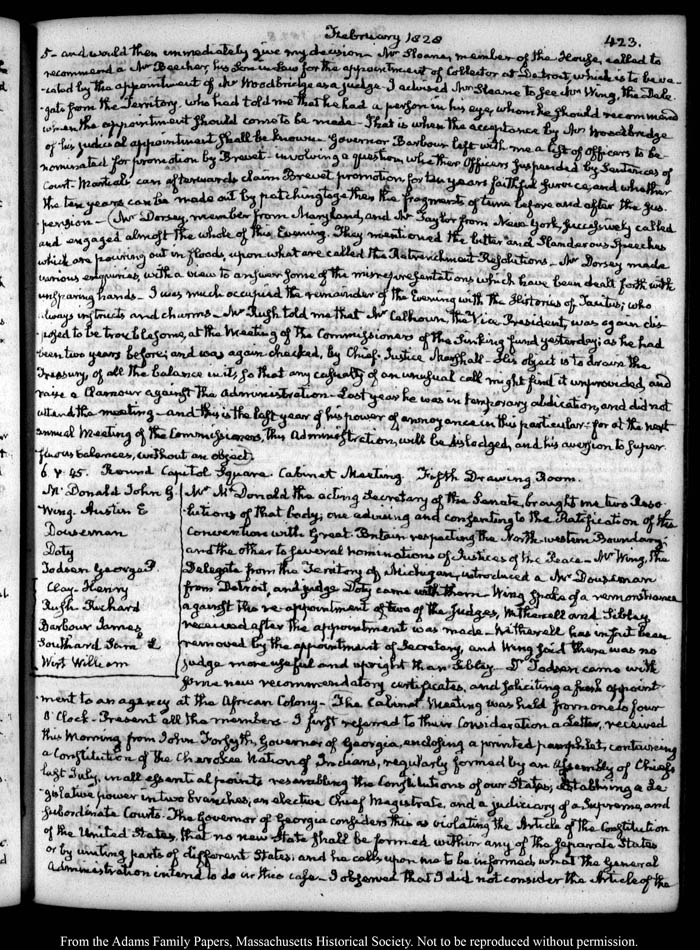 February 1828
423.
5– and would then immediately give my decision– Mr Sloane, member of the House, called to
recommend a Mr Beecher, his Son in Law for the appointment of Collector at Detroit, which is to be va-
-cated by the appointment of Mr Woodbridge as a judge– I advised Mr Sloane to see Mr Wing, the Dele-
-gate from the Territory, who had told me that he had a person in his eye, whom he should recommend
when the appointment should come to be made– That is when the acceptance by Mr Woodbridge
of his judicial appointment shall be known– Governor Barbour left with me a list of Officers to be
nominated for promotion by Brevet– involving a question, whether Officers suspended by Sentences of
Court Martials can afterwards claim Brevet promotion for ten years faithful service, and whether
the ten years can be made out by patching together the fragments of time before and after the Sus-
-pension– Mr Dorsey, member from Maryland, and Mr Taylor from New York, successively called
and engaged almost the whole of this Evening. They mentioned the bitter and slanderous speeches
which are pouring out in floods, upon what are called the Retrenchment Resolutions– Mr Dorsey made
various enquiries, with a view to answer some of the misrepresentations which have been dealt forth with
unsparing hands– I was much occupied the remainder of the Evening with the Histories of Tacitus; who
always instructs and charms– Mr Rush told me that Mr Calhoun, the Vice President, was again dis-
-posed to be troublesome, at the Meeting of the Commissioners of the Sinking fund yesterday; as he had
been two years before; and was again checked, by Chief Justice Marshall– His object is to drain the
Treasury, of all the balance in it, so that any casualty of an unusual call might find it unprovided, and
raise a Clamour against the Administration– Last year he was in temporary abdication, and did not
attend the meeting– and this is the last year of his power of annoyance in this particular: for at the next
annual Meeting of the Commissioners, this Administration, will be dislodged, and his aversion to super-
-fluous balances, without an object.
6 V. 45. Round Capitol Square. Cabinet Meeting. Fifth Drawing Room.
Mc Donald John G.
Wing. Austin E
Douseman
Doty
Todsen George P.
Clay. Henry
Rush Richard
Barbour James
Southard Saml L
Wirt William
Mr McDonald the acting Secretary of the Senate, brought me two Reso-
-lutions of that body; one advising and consenting to the Ratification of the
Convention with Great-Britain respecting the North-western Boundary;
and the other to several nominations of Justices of the Peace– Mr Wing, the
Delegate from the Territory of Michigan, introduced a Mr Douseman
from Detroit, and judge Doty came with them– Wing spoke of a remonstrance
against the re-appointment of two of the Judges, Witherell and Sibley
received after the appointment was made– Witherell has in fact been
removed by the appointment of Secretary, and Wing said there was no
judge more useful and upright than Sibley– Dr Todsen came with
some new recommendatory certificates, and soliciting a fresh appoint-
-ment to an agency at the African Colony– The Cabinet Meeting was held from one to four
O'Clock– Present all the members– I first referred to their consideration a Letter, received
this Morning from John Forsyth, Governor of Georgia, enclosing a printed pamphlet, containing
a Constitution of the Cherokee Nation of Indians, regularly formed by an Assembly of Chiefs
last July, in all essential points resembling the Constitutions of our States; establishing a Le-
-gislative power in two branches, an elective Chief Magistrate, and a judiciary of a Supreme, and
subordinate Courts– The Governor of Georgia considers this as violating the Article of the Constitution
of the United States, that no new State shall be formed within any of the separate States
or by uniting parts of different States: and he calls upon me to be informed, what the General
Administration intend to do in this case– I observed that I did not consider the Article of the
From the Adams Family Papers, Massachusetts Historical Society. Not to be reproduced without permission.